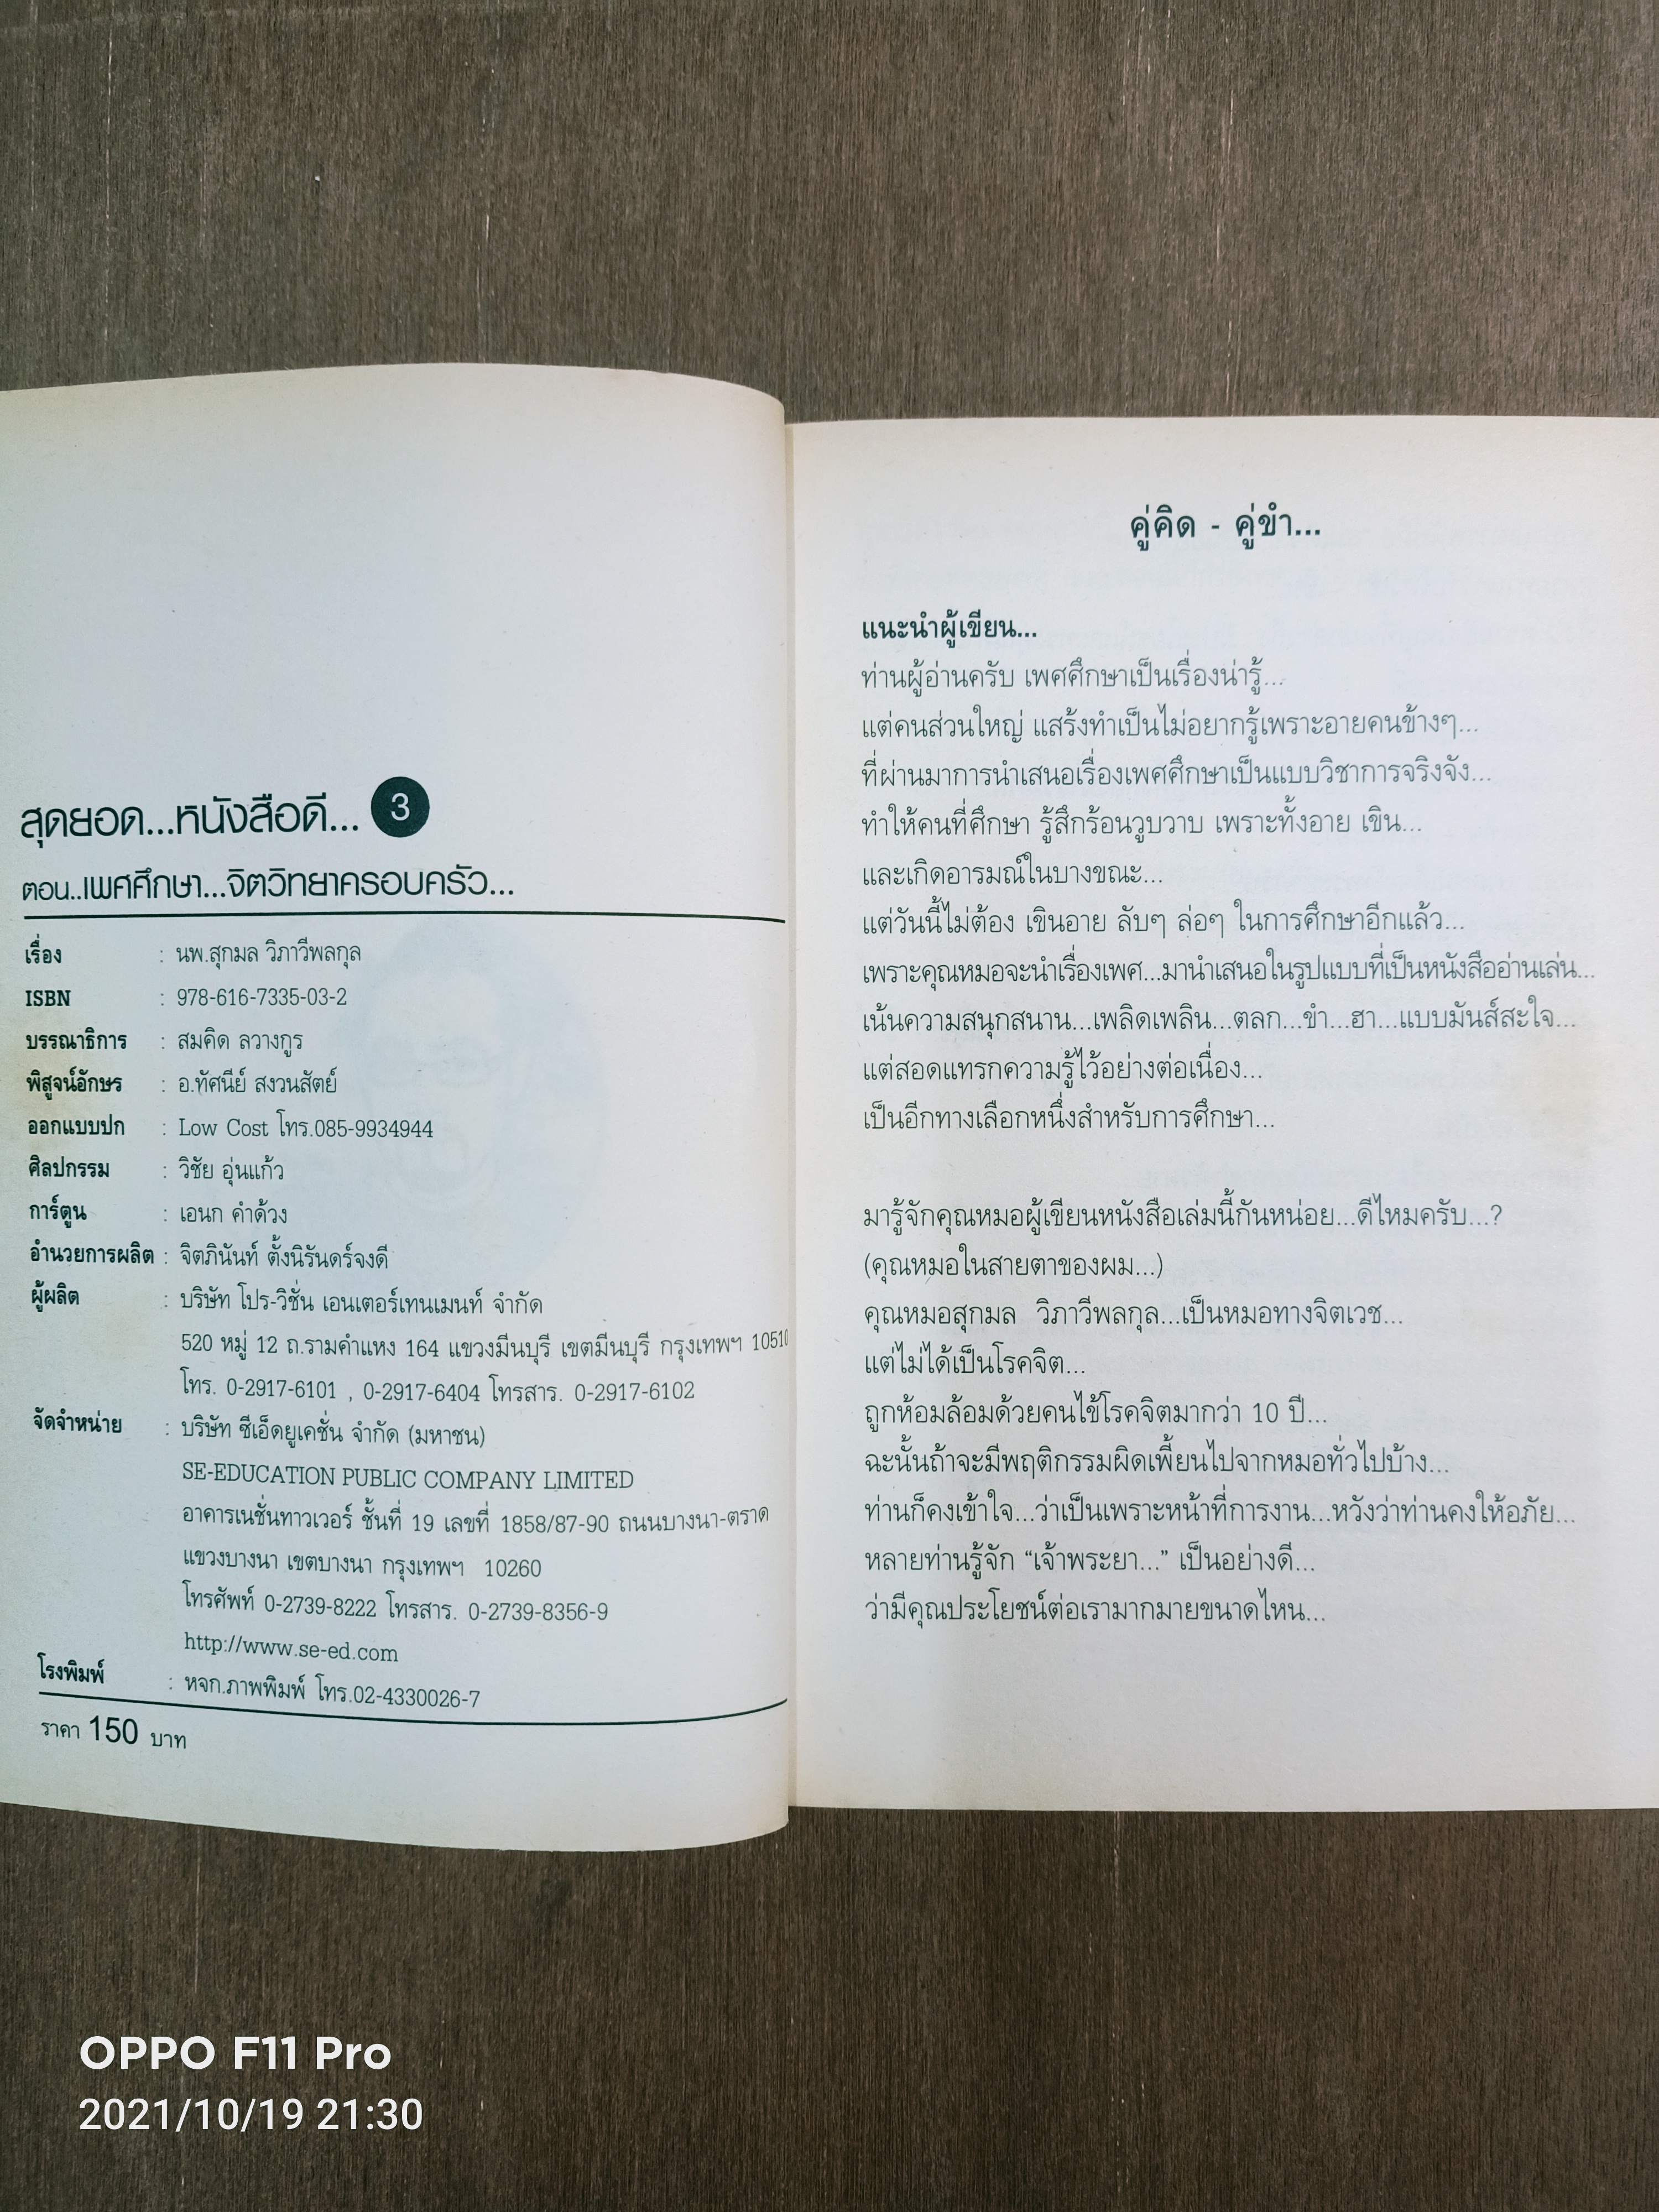 สุดยอด...หนังสือดี... 3
ตอน..เพศศึกษา...จิตวิทยาครอบครัว...
เรื่อง : นพ.สุกมล วิภาวีพลกุล
ISBN : 978-616-7335-03-2
บรรณาธิการ : สมคิด ลวางกูร
พิสูจน์อักษร : อ.ทัศนีย์ สงวนสัตย์
ออกแบบปก : Low Cost โทร.085-9934944
ศิลปกรรม : วิชัย อุ่นแก้ว
การ์ตูน : เอนก คำด้วง
อำนวยการผลิต : จิตภินันท์ ตั้งนิรันดร์จงดี
ผู้ผลิต : บริษัท โปร-วิชั่น เอนเตอร์เทนเมนท์ จำกัด
520 หมู่ 12 ถ.รามคำแหง 164 แขวงมีนบุรี เขตมีนบุรี กรุงเทพฯ 10510
โทร. 0-2917-6101 , 0-2917-6404 โทรสาร. 0-2917-6102
จัดจำหน่าย : บริษัท ซีเอ็ดยูเคชั่น จำกัด (มหาชน)
SE-EDUCATION PUBLIC COMPANY LIMITED
อาคารเนชั่นทาวเวอร์ ชั้นที่ 19 เลขที่ 1858/87-90 ถนนบางนา-ตราด
แขวงบางนา เขตบางนา กรุงเทพฯ 10260
โทรศัพท์ 0-2739-8222 โทรสาร. 0-2739-8356-9
http://www.se-ed.com
โรงพิมพ์ : หจก.ภาพพิมพ์ โทร.02-4330026-7
ราคา 150 บาท
คู่คิด - คู่ขำ...
แนะนำผู้เขียน...
ท่านผู้อ่านครับ เพศศึกษาเป็นเรื่องน่ารู้...
แต่คนส่วนใหญ่ แสร้งทำเป็นไม่อยากรู้เพราะอายคนข้างๆ...
ที่ผ่านมาการนำเสนอเรื่องเพศศึกษาเป็นแบบวิชาการจริงจัง...
ทำให้คนที่ศึกษา รู้สึกร้อนวูบวาบ เพราะทั้งอาย เขิน...
และเกิดอารมณ์ในบางขณะ...
แต่วันนี้ไม่ต้อง เขินอาย ลับๆ ล่อๆ ในการศึกษาอีกแล้ว...
เพราะคุณหมอจะนำเรื่องเพศ...มานำเสนอในรูปแบบที่เป็นหนังสืออ่านเล่น...
เน้นความสนุกสนาน...เพลิดเพลิน...ตลก...ขำ...ฮา...แบบมันส์สะใจ...
แต่สอดแทรกความรู้ไว้อย่างต่อเนื่อง...
เป็นอีกทางเลือกหนึ่งสำหรับการศึกษา...
มารู้จักคุณหมอผู้เขียนหนังสือเล่มนี้กันหน่อย...ดีไหมครับ...?
(คุณหมอในสายตาของผม...)
คุณหมอสุกมล วิภาวีพลกุล...เป็นหมอทางจิตเวช...
แต่ไม่ได้เป็นโรคจิต...
ถูกห้อมล้อมด้วยคนไข้โรคจิตมากว่า 10 ปี...
ฉะนั้นถ้าจะมีพฤติกรรมผิดเพี้ยนไปจากหมอทั่วไปบ้าง...
ท่านก็คงเข้าใจ...ว่าเป็นเพราะหน้าที่การงาน...หวังว่าท่านคงให้อภัย...
หลายท่านรู้จัก “เจ้าพระยา...” เป็นอย่างดี...
ว่ามีคุณประโยชน์ต่อเรามากมายขนาดไหน...
OPPO F11 Pro
2021/10/19 21:30